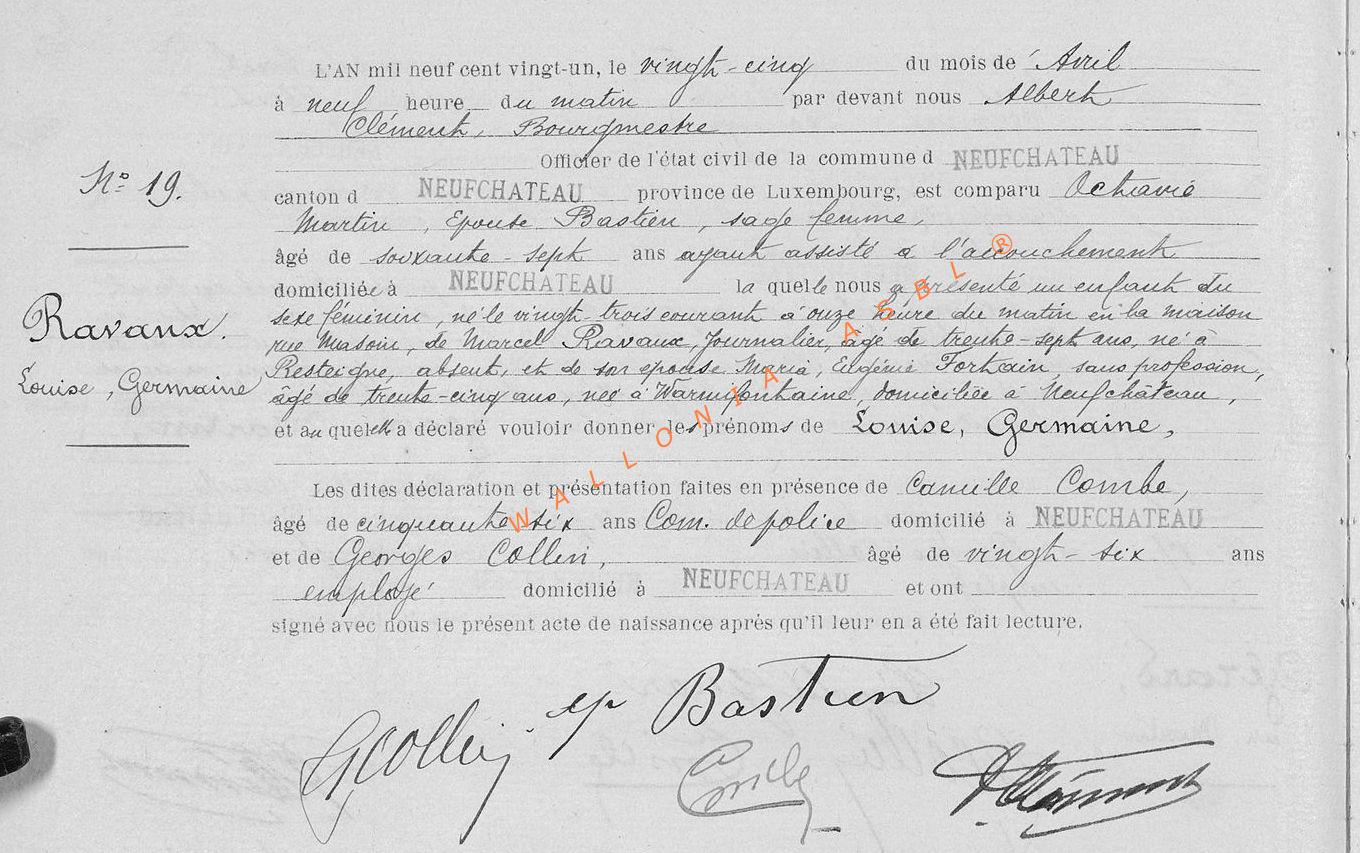 L'AN mil neuf cent vingt-un, le vingt-cinq du mois de Avril
à neuf heure du matin par devant nous Albert
Clément, Bourgmestre
Officier de l'état civil de la commune d NEUFCHATEAU
canton d NEUFCHATEAU province de Luxembourg, est comparu Octavie
Martin, Epouse Bastien, sage femme,
âgé de soixante-sept ans ayant assisté à l'accouchement
domiciliée à NEUFCHATEAU la quelle nous a présenté un enfant du
sexe féminin, né le vingt-trois courant à onze heure du matin en la maison
rue de Marcel Ravaux, Journalier, âgé de trente-sept ans, né à
Resteigne, absent, et de son épouse Maria, Eugénie Fortain, sans profession,
âgé de trente-cinq ans, née à Warmifontaine, domiciliée à Neufchâteau,
et au quel elle a déclaré vouloir donner les prénoms de Louise, Germaine,
Les dites déclaration et présentation faites en présence de Camille Combe,
âgé de cinquante six ans Com. de police domicilié à NEUFCHATEAU
et de Georges Collin, âgé de vingt-six ans
employé domicilié à NEUFCHATEAU et ont
signé avec nous le présent acte de naissance après qu'il leur en a été fait lecture.
No 19.
Ravaux.
Louise, Germaine
GCollin
ep Bastien
Combe
AClément
WALLONIA ASBL ®